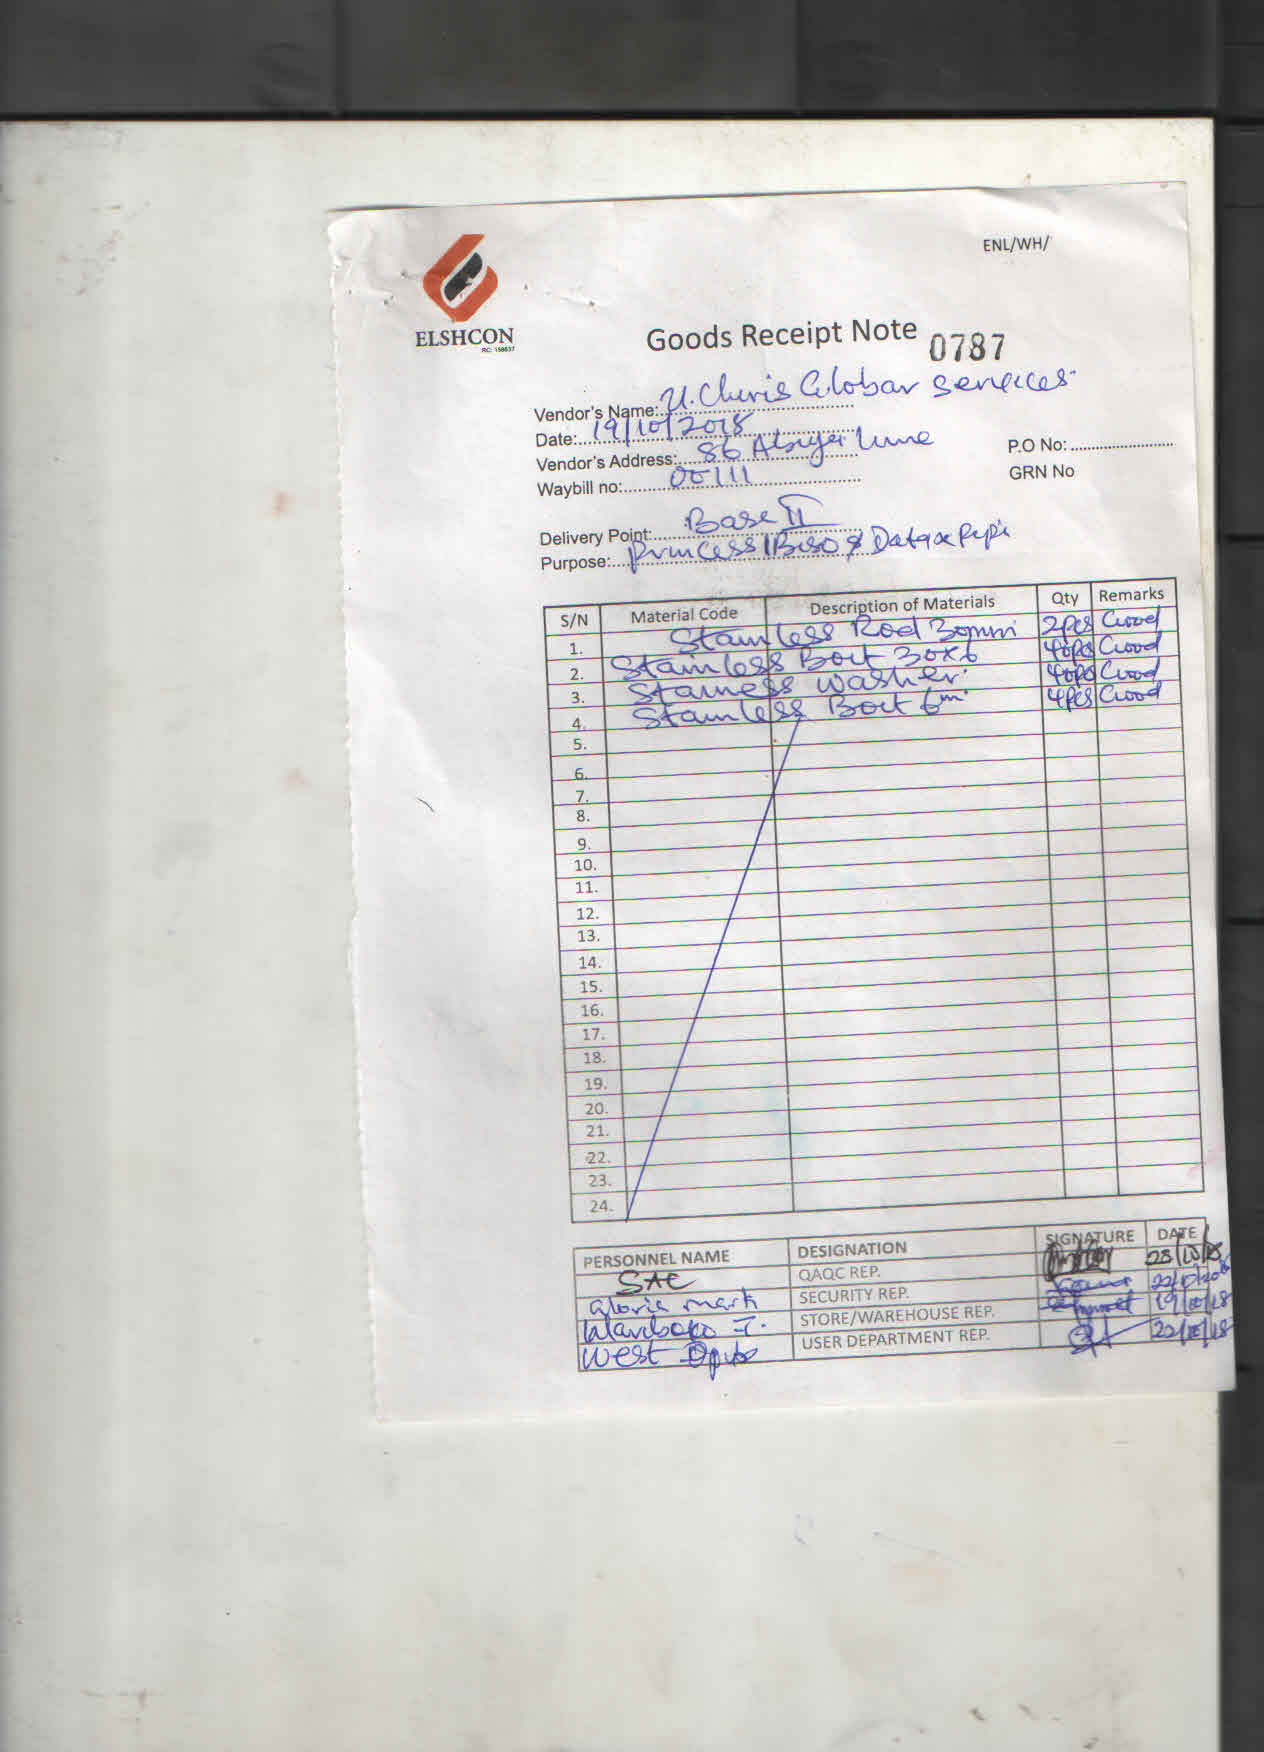 ENL/WH/
ELSHCON
RC: 158637
Goods Receipt Note 0787
Vendor's Name: U. Chris Global Services
Date: 19/10/2018
Vendor's Address: 86 Abuja Lane
P.O No:
Waybill no: 00111
GRN No
Delivery Point: Base II
Purpose: Princess IBISO &
S/N Material Code Description of Materials Qty Remarks
1. Stainless Rod 30mm 2pcs Good
2. Stainless Bolt 30x6 40pcs Good
3. Stainless washer 40pcs Good
4. Stainless Bolt 6m 4pcs Good
5.
6.
7.
8.
9.
10.
11.
12.
13.
14.
15.
16.
17.
18.
19.
20.
21.
22.
23.
24.
PERSONNEL NAME DESIGNATION SIGNATURE DATE
QAQC REP.
Gloria mark SECURITY REP. 22/10/2018
STORE/WAREHOUSE REP. 19/10/18
West USER DEPARTMENT REP. 22/10/18